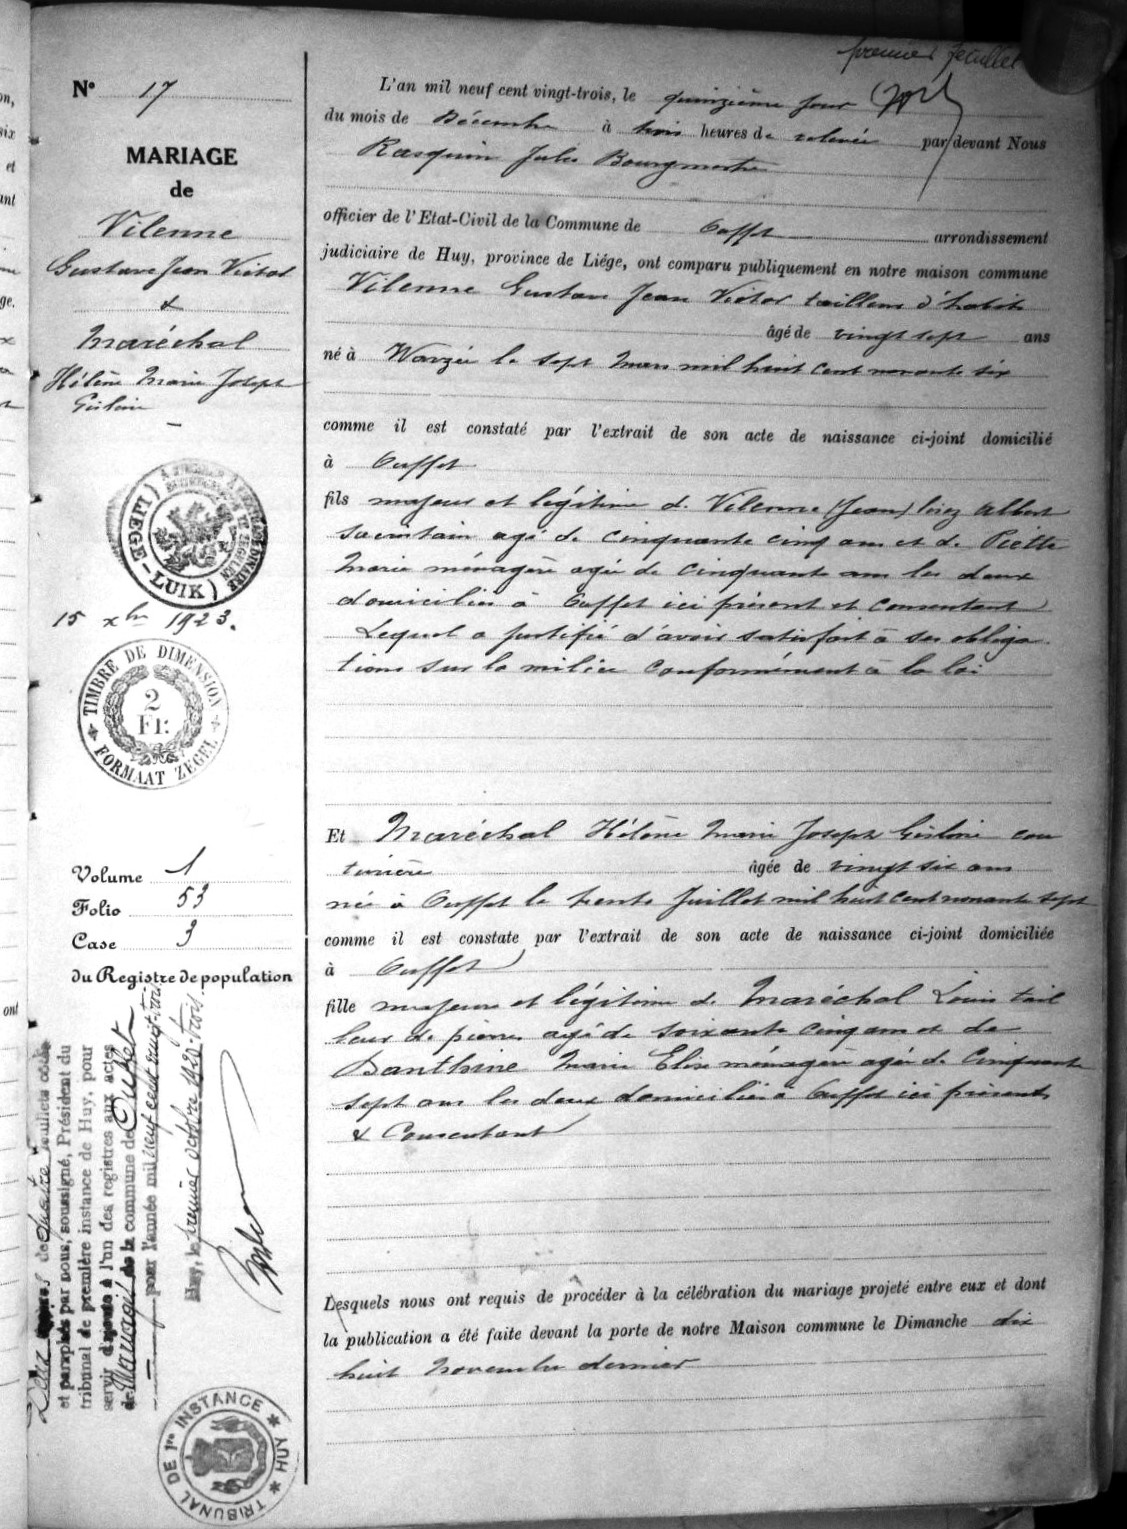 premier feuillet
N° 17
MARIAGE
de
Vilenne
Gustave Jean Victor
&
Maréchal
Hélène Marie Joseph
Ghislaine
(LIEGE-LUIK)
15 xbre 1923.
TIMBRE DE DIMENSION
2
Fr.
FORMAAT ZEGEL
Volume 1
Folio 53
Case 3
du Registre de population
de quatre feuillets cotés
et paraphés par nous, soussigné, Président du
tribunal de première instance de Huy, pour
servir à l'un des registres aux actes
de Mariage de la commune de Ouffet
pour l'année mil neuf cent vingt-trois
Huy, le premier octobre 1920-trois.
TRIBUNAL DE 1re INSTANCE * HUY *
L'an mil neuf cent vingt-trois, le quinzième jour
du mois de Décembre à trois heures de relevée par devant Nous
Rasquin Jules Bourgmestre
officier de l'Etat-Civil de la Commune de Ouffet arrondissement
judiciaire de Huy, province de Liége, ont comparu publiquement en notre maison commune
Vilenne Gustave Jean Victor tailleur d'habits
âgé de vingt sept ans
né à Warzée le sept mars mil huit cent nonante six
comme il est constaté par l'extrait de son acte de naissance ci-joint domicilié
à Ouffet
fils majeur et légitime de Vilenne (Jean) lisez Albert
sacristain agé de cinquante cinq ans et de Piette
Marie ménagère agée de cinquante ans les deux
domiciliés à Ouffet ici présent et consentant
Lequel a justifié d'avoir satisfait à ses obliga
tions sur la milice conformément à la loi
Et Maréchal Hélène Marie Joseph Ghislaine cou
turière âgée de vingt six ans
née à Ouffet le trente Juillet mil huit cent nonante sept
comme il est constaté par l'extrait de son acte de naissance ci-joint domiciliée
à Ouffet
fille majeure et légitime de Maréchal Louis tail
leur de pierres agé de soixante cinq ans et de
Danthine Marie Elise ménagère agée de cinquante
sept ans les deux domiciliés à Ouffet ici présents
& Consentant
Lesquels nous ont requis de procéder à la célébration du mariage projeté entre eux et dont
la publication a été faite devant la porte de notre Maison commune le Dimanche dix
huit novembre dernier